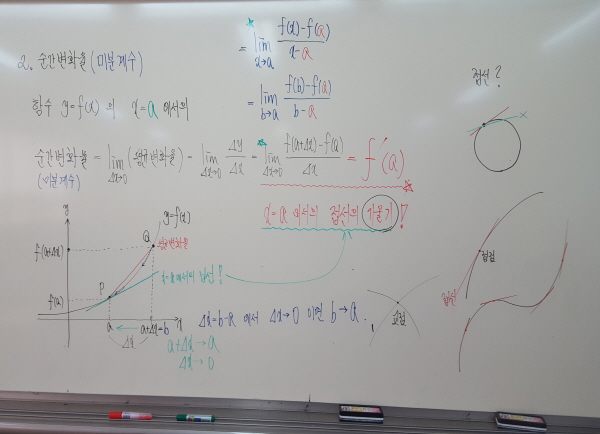 2. 순간변화율 (미분계수)
함수 y=f(x) 의 x=a 에서의
순간변화율 = lim Δx→0 (평균변화율) = lim Δx→0 Δy/Δx = lim Δx→0 f(a+Δx)-f(a)/Δx = f'(a)
(미분계수)
= lim x→a f(x)-f(a)/x-a
= lim b→a f(b)-f(a)/b-a
x=a 에서의 접선의 기울기!
y
y=f(x)
Q
평균변화율
f(a+Δx)
x=a에서의 접선!
P
f(a)
a a+Δx=b x
Δx
a+Δx→a
Δx→0
Δx=b-a 에서 Δx→0 이면 b→a.
접선?
x
접점
접선
교점